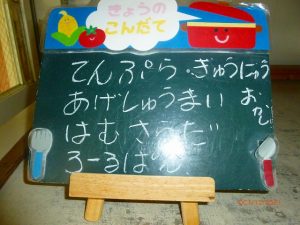 きょうの
こんだて
てんぷら・ぎゅうにゅう
あげしゅうまい
はむさらだ
ろーるぱん